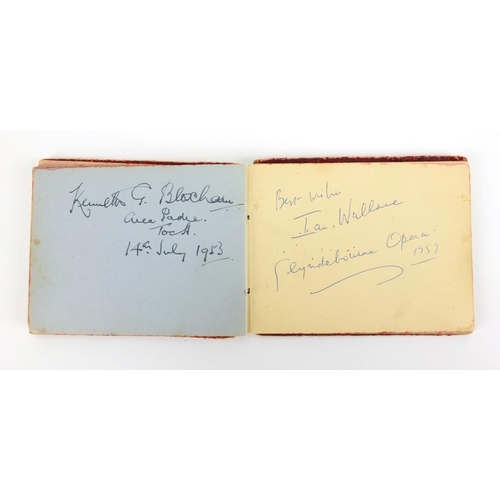 Kenneth G. Bloxham
Area Padre.
Toc H.
14th July 1953
Best wishes
Ian Wallace
Glyndebourne Opera
1957